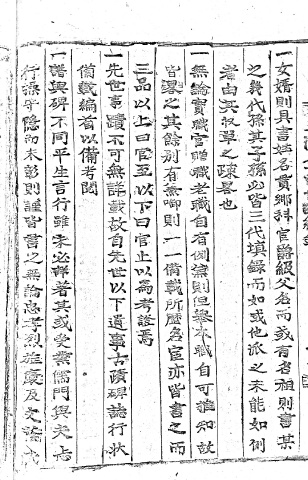 一女婿則具書姓名貫鄕科官爵級父名而或有名祖則書某
之幾代孫其子孫必皆三代塡錄而如或他派之未能如例
者由其收單之疎畧也
一無論實職官贈職老職自有例焉則但擧本職自可推知故
皆畧之其餘別有無啣則一一備載所歷名宦亦皆書之而
三品以上曰官至以下曰官止以爲考證焉
一先世事蹟不可無詳載故自先世以下遺事古蹟碑誌行狀
備載編首以備考閱
一譜與碑不同平生言行雖未必詳著其或受業儒門與夫志
行操守隱而未彰則謹皆書之無論忠孝烈旌褒及文